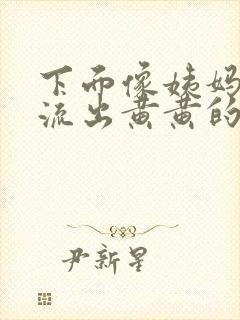 下面像姨妈
流出黄黄的
尹新星